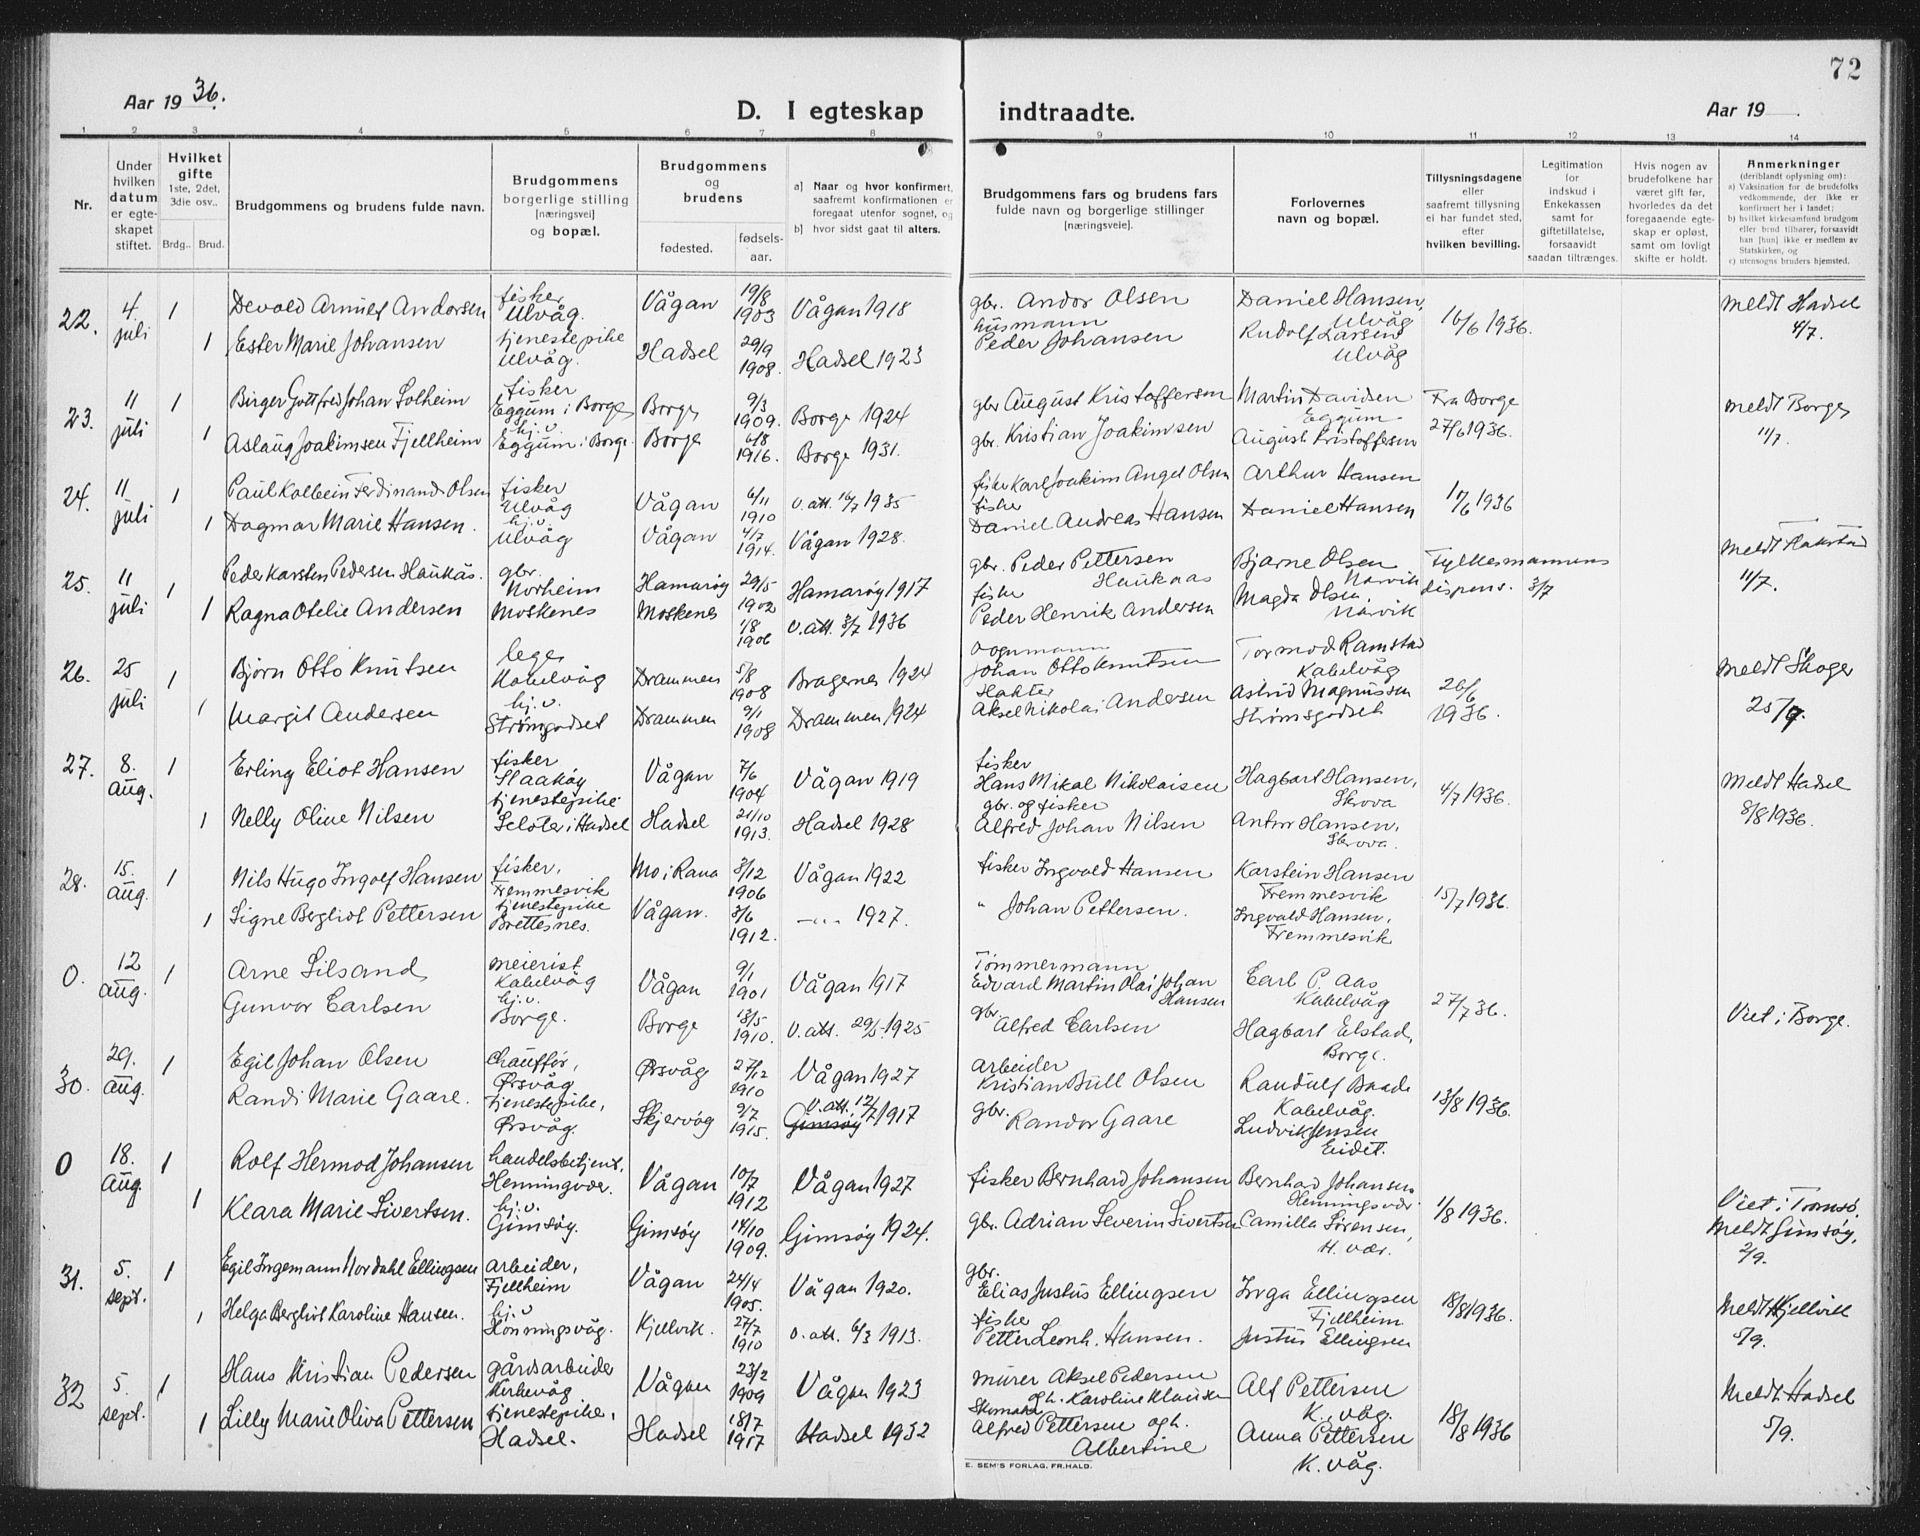 72
Aar 19 36.
D. I egteskap indtraadte.
Aar 19
1 2 3 4 5 6 7 8 9 10 11 12 13 14
Nr.
Under hvilken datum er egteskapet stiftet.
Hvilket gifte 1ste, 2det, 3die osv..
Brdg.. Brud.
Brudgommens og brudens fulde navn.
Brudgommens borgerlige stilling [næringsvei] og bopæl.
Brudgommens og brudens
fødested.
fødselsaar.
a) Naar og hvor konfirmert, saafremt konfirmationen er foregaat utenfor sognet, og
b) hvor sidst gaat til alters.
Brudgommens fars og brudens fars fulde navn og borgerlige stillinger [næringsveie].
Forlovernes navn og bopæl.
Tillysningsdagene eller saafremt tillysning ei har fundet sted, efter hvilken bevilling.
Legitimation for indskud i Enkekassen samt for giftetillatelse, forsaavidt saadan tiltrænges.
Hvis nogen av brudefolkene har været gift før, hvorledes da det foregaaende egteskap er opløst, samt om lovlig skifte er holdt.
Anmerkninger (deriblandt oplysning om): a) Vaksination for de brudefolks vedkommende, der ikke er konfirmert her i landet; b) hvilket kirkesamfund brudgom eller brud tilhører, forsaavidt han [hun] ikke er medlem av Statskirken, og c) utensogns bruders hjemsted.
22. 4. juli 1 Devold Arnulf Andorsen fisker Ulvåg. Vågan 19/8 1903 Vågan 1918 gbr. Andor Olsen Daniel Hansen, Ulvåg 16/6 1936. Meldt Hadsel 4/7.
1 Ester Marie Johansen tjenestepike Ulvåg. Hadsel 29/9 1908. Hadsel 1923 husmann Peder Johansen Rudolf Larsen Ulvåg
23. 11 juli 1 Birger Gottfred Johan Solheim fisker Eggum i Borge Borge 9/3 1909. Borge 1924 gbr August Kristoffersen Martin Davidsen Eggum Fra Borge 27/6 1936. Meldt Borge 11/7.
1 Aslaug Joakimsen Fjellheim hj.v. Eggum i Borge. Borge 6/8 1916. Borge 1931. gbr. Kristian Joakimsen August Kristoffersen
24. 11 juli 1 Paul Kolbein Ferdinand Olsen fisker Ulvåg Vågan 6/11 1910 v. att. 16/7 1935 fisker Karl Joakim Angel Olsen Arthur Hansen 17/6 1936
1 Dagmar Marie Hansen. hj.v Ulvåg Vågan 4/7 1914. Vågan 1928. fisker Daniel Andreas Hansen Daniel Hansen
25. 11 juli 1 Peder Karsten Pedersen Haukås. gbr. Norheim Hamarøy 29/5 1902 Hamarøy 1917 gbr. Peder Pettersen Hauknaas Bjarne Olsen Narvik Fylkesmannens dispens. 3/7 Meldt Flakstad 11/7.
1 Ragna Otelie Andersen Moskenes Moskenes 1/8 1906 v. att. 3/7 1936 fisker Peder Henrik Andersen Magda Olsen Narvik
26. 25 juli 1 Bjørn Otto Knutsen lege Kabelvåg Drammen 5/8 1908 Bragernes 1924 vognmann Johan Otto Knutsen Tormod Ramstad Kabelvåg 26/6 1936. Meldt Skoger 25/7.
1 Margit Andersen hj.v. Strømgodset Drammen 9/1 1908 Drammen 1924 Aksel Nikolai Andersen Astrid Magnussen Strømsgodset
27. 8. aug. 1 Erling Eliot Hansen fisker Slaakøy Vågan 7/6 1904 Vågan 1919 fisker Hans Mikal Nikolaisen Hagbart Hansen, Skrova 4/7 1936. Meldt Hadsel 8/8 1936.
1 Nelly Oline Nilsen tjenestepike Seloter i Hadsel Hadsel 21/10 1913. Hadsel 1928 gbr. og fisker Alfred Johan Nilsen Anton Hansen, Skrova.
28. 15. aug. 1 Nils Hugo Ingolf Hansen fisker, Fremmesvik Mo i Rana 3/12 1906 Vågan 1922 fisker Ingvald Hansen Karstein Hansen Fremmesvik 15/7 1936.
1 Signe Bergliot Pettersen tjenestepike Brettesnes. Vågan. 3/6 1912. —"— 1927. " Johan Pettersen. Ingvald Hansen, Fremmesvik
0. 12 aug. 1 Arne Silsand meierist Kabelvåg Vågan 9/1 1901 Vågan 1917 Tømmermann Edvard Martin Olai Johan Hansen Carl P. Aas Kabelvåg 27/7 36. Viet i Borge.
Gunvor Carlsen hj.v. Borge. Borge 13/5 1910. v. att. 29/5 1925 gbr. Alfred Carlsen Hagbart Elstad, Borge.
30. 29. aug. 1 Egil Johan Olsen chauffør, Ørsvåg Ørsvåg 27/12 1910 Vågan 1927 arbeider Kristian Bull Olsen Randulf Baade Kabelvåg. 13/8 1936.
Randi Marie Gaare. tjenestepike, Ørsvåg. Skjervøy 9/7 1915. Gimsøy v. att. 12/7 1917 gbr. Randor Gaare Ludvik Jensen Eidet.
0 18. aug. 1 Rolf Hermod Johansen handelsbetjent, Henningsvær. Vågan 10/7 1912 Vågan 1927 fisker Bernhard Johansen Bernhard Johansen Henningsvær 1/8 1936. Viet i Tromsø. Meldt Gimsøy, 2/9.
1 Klara Marie Sivertsen. hj.v. Gimsøy. Gimsøy 14/10 1909. Gimsøy 1924. gbr. Adrian Severin Sivertsen Camilla Sørensen, H. vær.
31. 5. sept. 1 Egil Ingemann Nordahl Ellingsen arbeider, Fjellheim Vågan 24/4 1905. Vågan 1920. gbr. Elias Justus Ellingsen Inga Ellingsen Fjellheim 18/8 1936. Meldt Kjelvik 5/9.
1 Helga Bergliot Karoline Hansen. hj.v Honningsvåg. Kjelvik. 27/7 1910 v. att. 6/3 1913. fisker Petter Leonh. Hansen. Justus Ellingsen
32 5. sept. 1 Hans Kristian Pedersen gårdsarbeider Kirkevåg Vågan 23/2 1909 Vågan 1923 murer Aksel Pedersen og h. Karoline Klausen Alf Pettersen K. våg. 18/8 1936 Meldt Hadsel 5/9.
1 Lilly Marie Oliva Pettersen tjenestepike, Hadsel. Hadsel 18/7 1917 Hadsel 1932 Skomaker Alfred Pettersen og h. Albertine Anna Pettersen K. våg.
E. SEM'S FORLAG, FR.HALD.